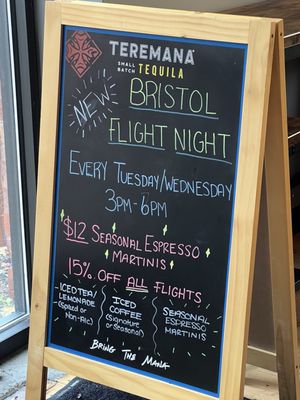 TEREMANA
SMALL BATCH TEQUILA
NEW
BRISTOL
FLIGHT NIGHT
EVERY TUESDAY/WEDNESDAY
3PM-6PM
$12 SEASONAL ESPRESSO
MARTINIS
15% OFF ALL FLIGHTS
ICED TEA/
LEMONADE
(Spiked or
Non-Alc)
ICED
COFFEE
(Signature
or Seasonal)
SEASONAL
ESPRESSO
MARTINIS
BRING THE MANA